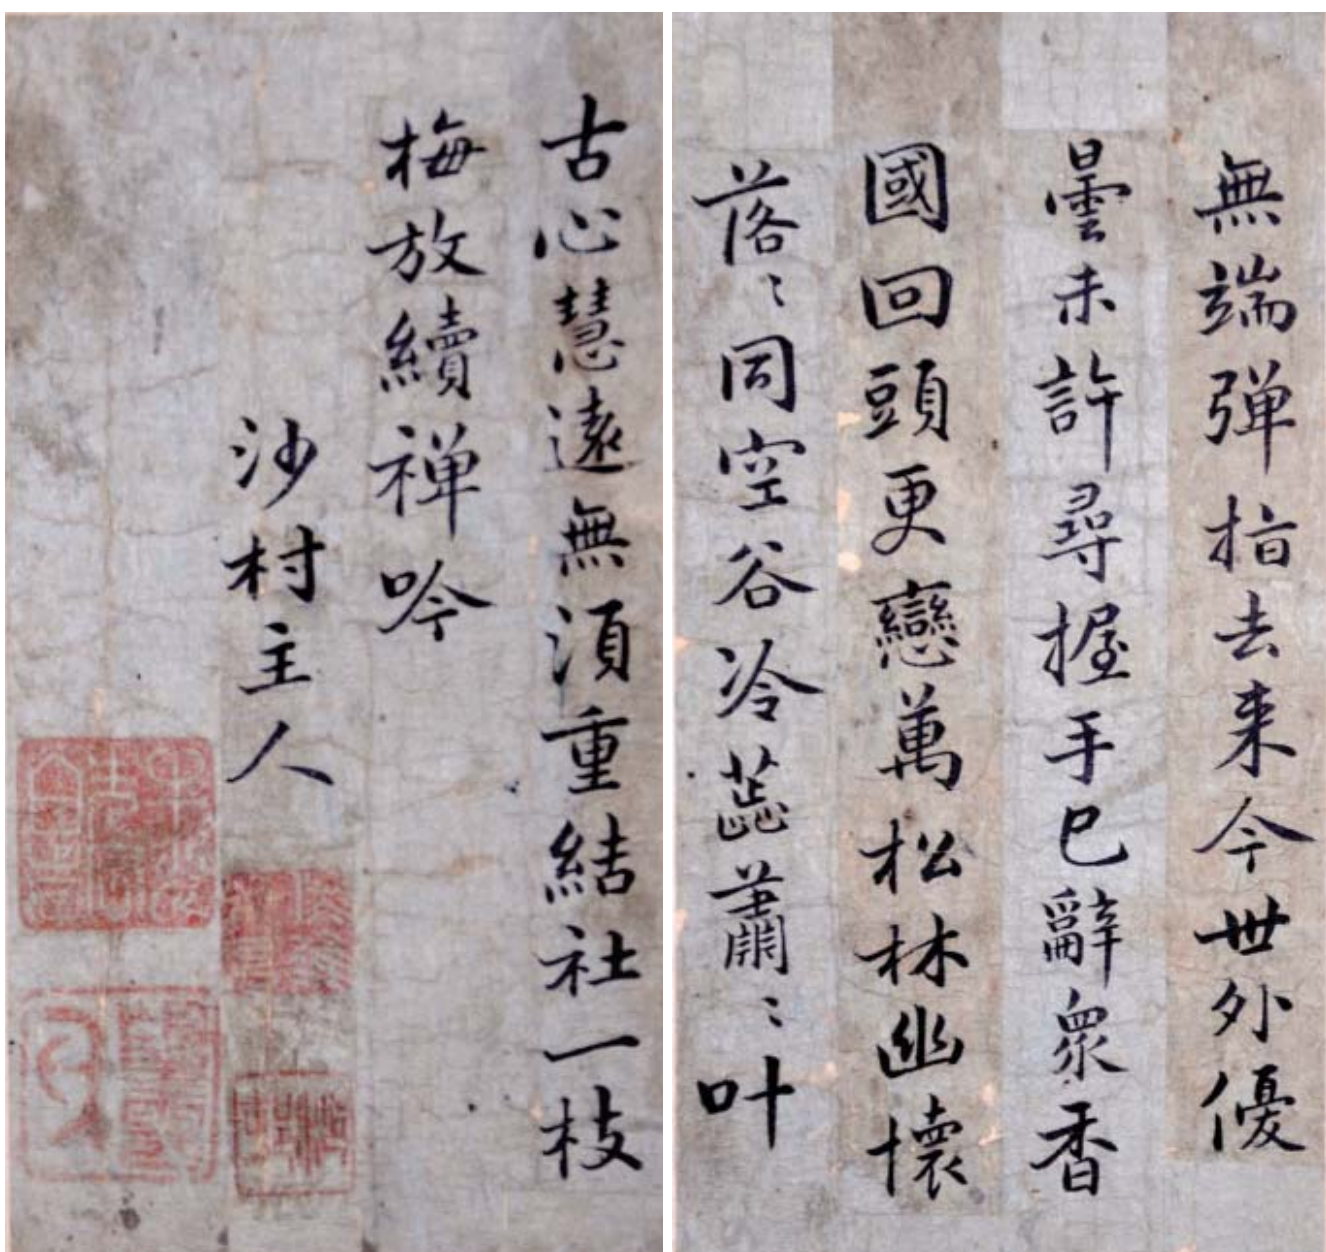 無端弾指去来今世外優
曇未許尋握手已辭眾香
國回頭更戀萬松林幽懷
落〻同空谷冷蕊蕭〻叶
古心慧遠無須重結社一枝
梅放續禅吟
沙村主人